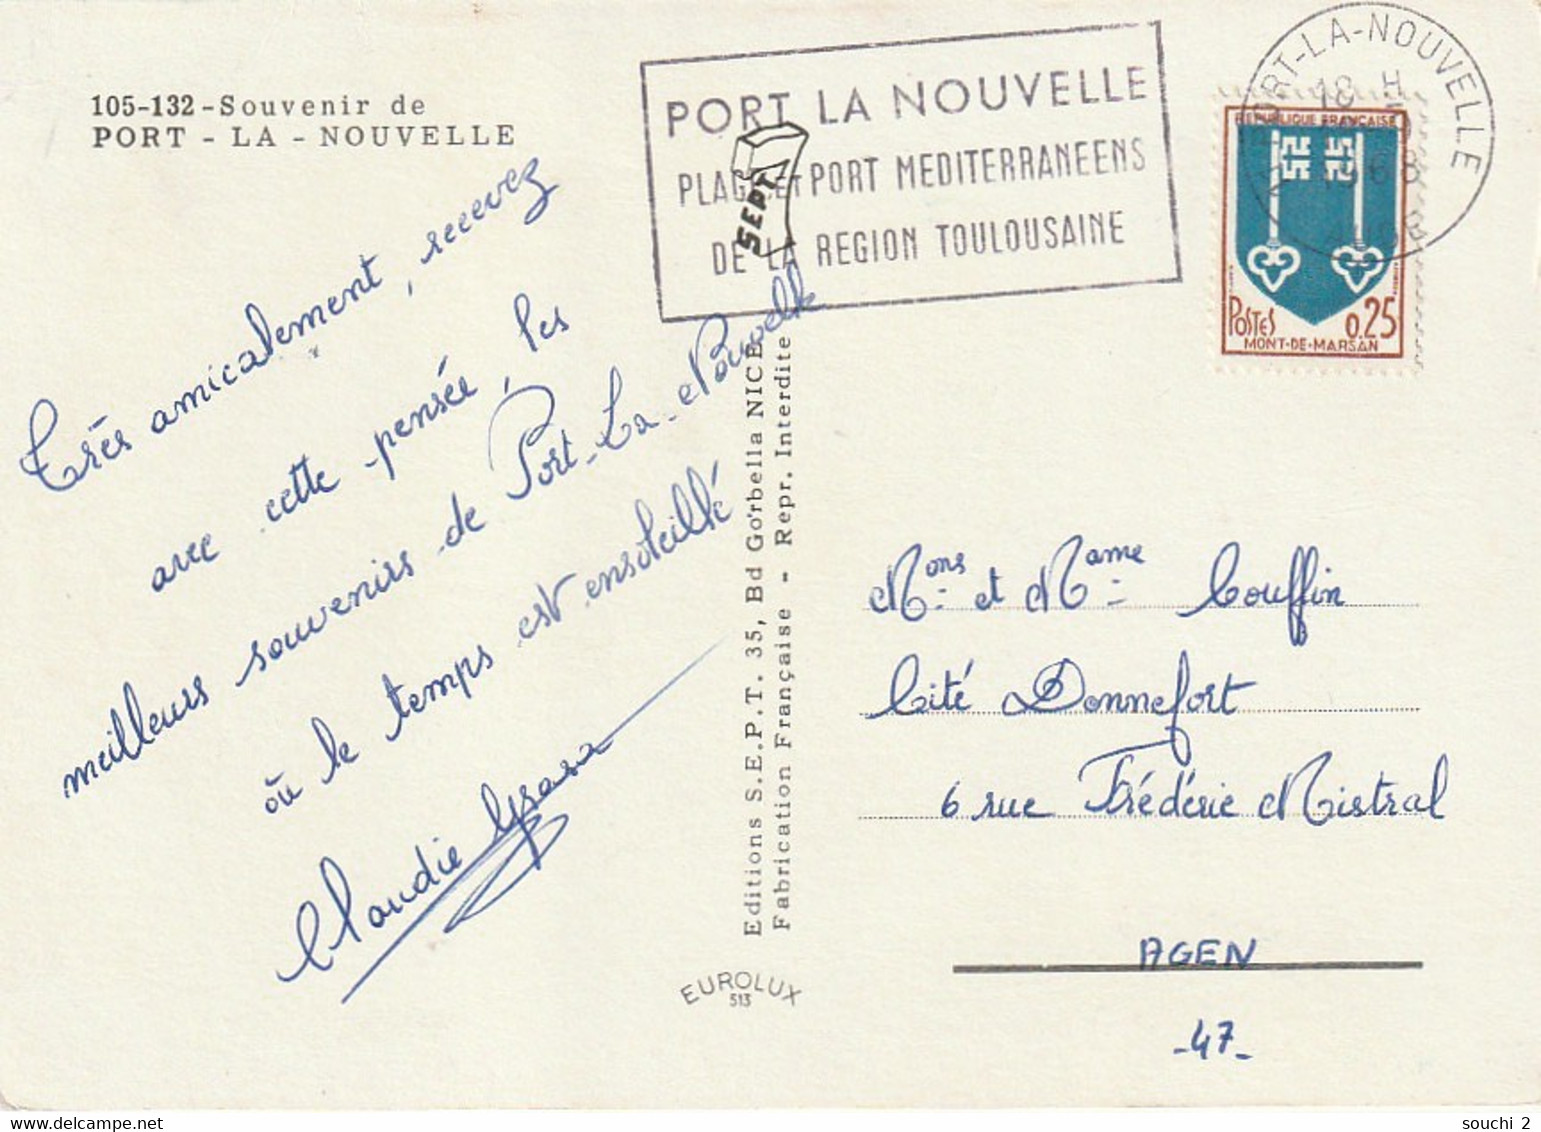 105-132 - Souvenir de
PORT - LA - NOUVELLE
Très amicalement, recevez
avec cette pensée, les
meilleurs souvenirs de Port-La-Nouvelle
où le temps est ensoleillé
Claudie
PORT LA NOUVELLE
PLAGE ET PORT MEDITERRANEENS
DE LA REGION TOULOUSAINE
SEPT
PORT-LA-NOUVELLE
18 H
1968
AUDE
REPUBLIQUE FRANÇAISE
POSTES 0,25
MONT-DE-MARSAN
Editions S.E.P.T. 35, Bd Gorbella NICE
Fabrication Française - Repr. Interdite
EUROLUX
513
Mons et Mame Couffin
Cité Donnefort
6 rue Frédéric Mistral
AGEN
-47-
souchi 2